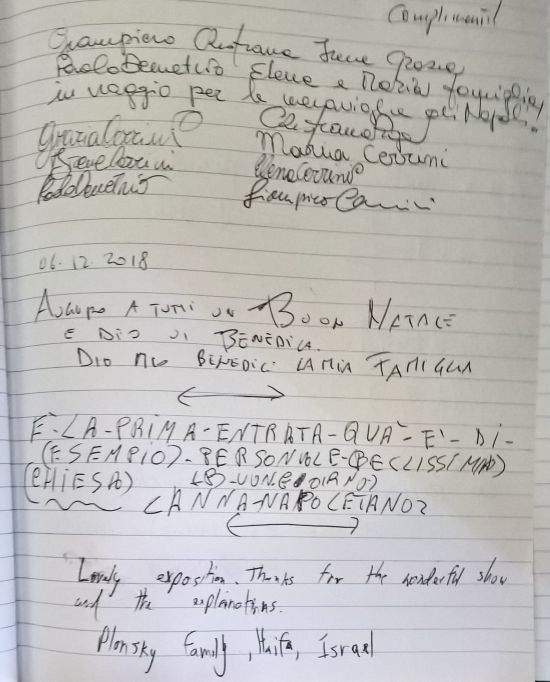 Complimenti!
Giampiero Irene Grazia
Paolo Demetrio Elena e Maria famiglia
in viaggio per le meraviglie di Napoli.
Grazia Cerrini
Maria Cerrini
Irene Cerrini Elena Cerrini
Paolo Demetrio Giampiero Cerrini
06.12.2018
Auguro a tutti un Buon Natale
e Dio vi Benedica.
Dio mio Benedici la mia Famiglia
E'-LA-PRIMA-ENTRATA-QUA'-E'-DI-
(ESEMPIO)-PERSONALE-
(CHIESA)
Lovely exposition. Thanks for the wonderful show
and the explanations.
Plonsky family, Haifa, Israel